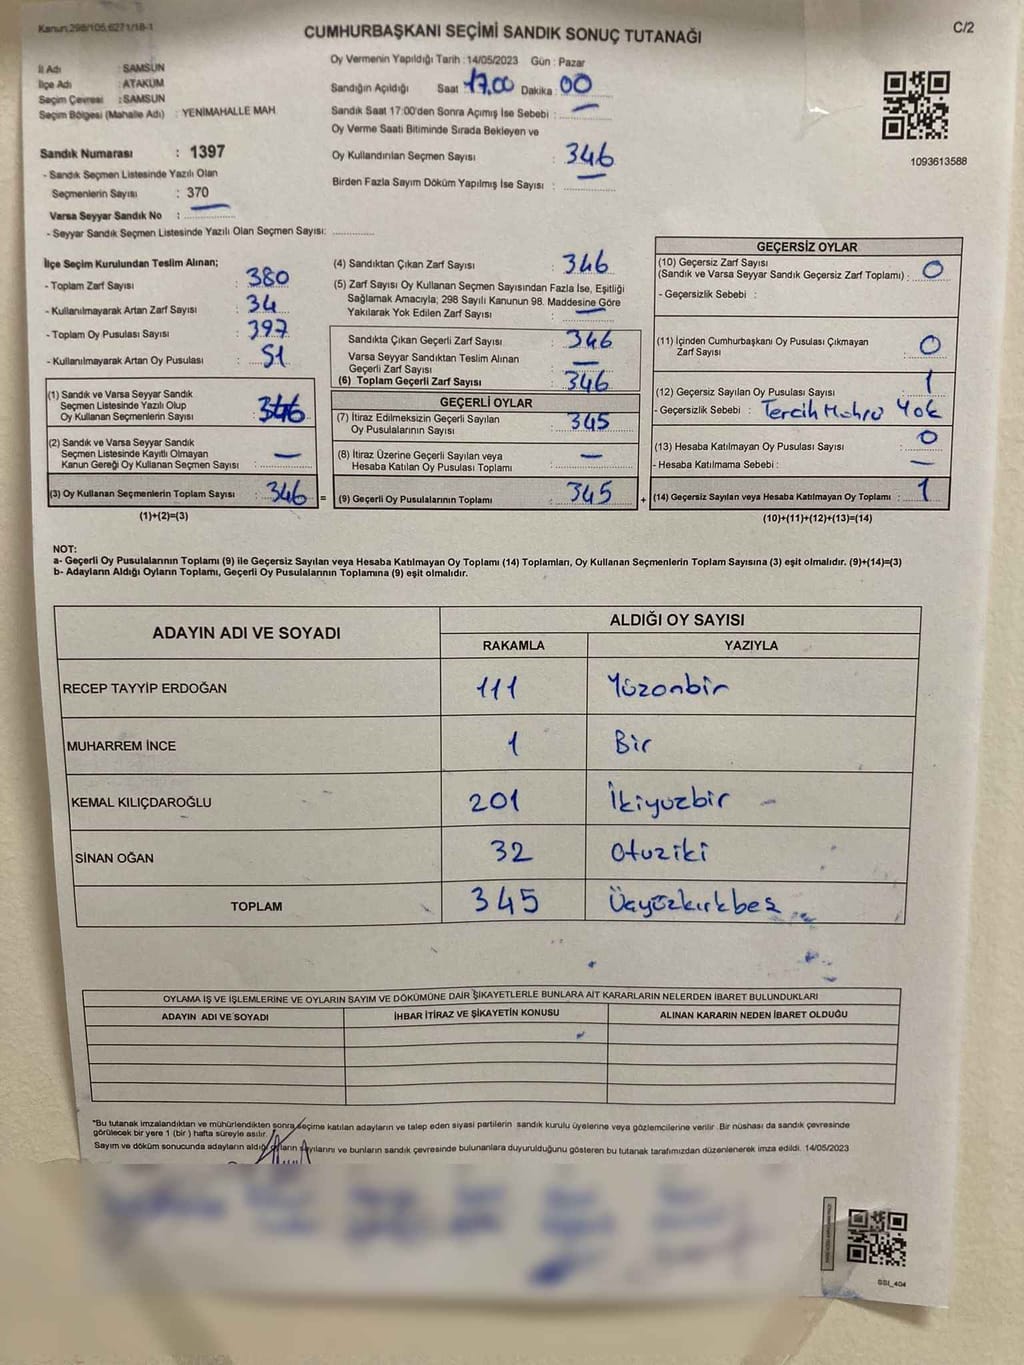 Kanun:298/105,6271/18-1
CUMHURBAŞKANI SEÇİMİ SANDIK SONUÇ TUTANAĞI
C/2
İl Adı : SAMSUN
İlçe Adı : ATAKUM
Seçim Çevresi : SAMSUN
Seçim Bölgesi (Mahalle Adı) : YENİMAHALLE MAH
Sandık Numarası : 1397
- Sandık Seçmen Listesinde Yazılı Olan
Seçmenlerin Sayısı : 370
Varsa Seyyar Sandık No :
- Seyyar Sandık Seçmen Listesinde Yazılı Olan Seçmen Sayısı:
Oy Vermenin Yapıldığı Tarih : 14/05/2023 Gün : Pazar
Sandığın Açıldığı Saat 17.00 Dakika : 00
Sandık Saat 17:00'den Sonra Açımış İse Sebebi :
Oy Verme Saati Bitiminde Sırada Bekleyen ve
Oy Kullandırılan Seçmen Sayısı : 346
Birden Fazla Sayım Döküm Yapılmış İse Sayısı :
1093613588
İlçe Seçim Kurulundan Teslim Alınan;
- Toplam Zarf Sayısı : 380
- Kullanılmayarak Artan Zarf Sayısı : 34
- Toplam Oy Pusulası Sayısı : 397
- Kullanılmayarak Artan Oy Pusulası : 51
(1) Sandık ve Varsa Seyyar Sandık
Seçmen Listesinde Yazılı Olup
Oy Kullanan Seçmenlerin Sayısı : 346
(2) Sandık ve Varsa Seyyar Sandık
Seçmen Listesinde Kayıtlı Olmayan
Kanun Gereği Oy Kullanan Seçmen Sayısı : —
(3) Oy Kullanan Seçmenlerin Toplam Sayısı : 346 =
(1)+(2)=(3)
(4) Sandıktan Çıkan Zarf Sayısı : 346
(5) Zarf Sayısı Oy Kullanan Seçmen Sayısından Fazla İse, Eşitliği
Sağlamak Amacıyla; 298 Sayılı Kanunun 98. Maddesine Göre
Yakılarak Yok Edilen Zarf Sayısı : —
Sandıkta Çıkan Geçerli Zarf Sayısı : 346
Varsa Seyyar Sandıktan Teslim Alınan
Geçerli Zarf Sayısı : —
(6) Toplam Geçerli Zarf Sayısı : 346
GEÇERLİ OYLAR
(7) İtiraz Edilmeksizin Geçerli Sayılan
Oy Pusulalarının Sayısı : 345
(8) İtiraz Üzerine Geçerli Sayılan veya
Hesaba Katılan Oy Pusulası Toplamı : —
(9) Geçerli Oy Pusulalarının Toplamı : 345 +
GEÇERSİZ OYLAR
(10) Geçersiz Zarf Sayısı
(Sandık ve Varsa Seyyar Sandık Geçersiz Zarf Toplamı) : 0
- Geçersizlik Sebebi :
(11) İçinden Cumhurbaşkanı Oy Pusulası Çıkmayan
Zarf Sayısı : 0
(12) Geçersiz Sayılan Oy Pusulası Sayısı : 1
- Geçersizlik Sebebi : Tercih Mührü Yok
(13) Hesaba Katılmayan Oy Pusulası Sayısı : 0
- Hesaba Katılmama Sebebi : —
(14) Geçersiz Sayılan veya Hesaba Katılmayan Oy Toplamı : 1
(10)+(11)+(12)+(13)=(14)
NOT:
a- Geçerli Oy Pusulalarının Toplamı (9) ile Geçersiz Sayılan veya Hesaba Katılmayan Oy Toplamı (14) Toplamları, Oy Kullanan Seçmenlerin Toplam Sayısına (3) eşit olmalıdır. (9)+(14)=(3)
b- Adayların Aldığı Oyların Toplamı, Geçerli Oy Pusulalarının Toplamına (9) eşit olmalıdır.
ADAYIN ADI VE SOYADI
ALDIĞI OY SAYISI
RAKAMLA YAZIYLA
RECEP TAYYİP ERDOĞAN 111 Yüzonbir
MUHARREM İNCE 1 Bir
KEMAL KILIÇDAROĞLU 201 İkiyüzbir
SİNAN OĞAN 32 Otuziki
TOPLAM 345 Üçyüzkırkbeş
OYLAMA İŞ VE İŞLEMLERİNE VE OYLARIN SAYIM VE DÖKÜMÜNE DAİR ŞİKAYETLERLE BUNLARA AİT KARARLARIN NELERDEN İBARET BULUNDUKLARI
ADAYIN ADI VE SOYADI İHBAR İTİRAZ VE ŞİKAYETİN KONUSU ALINAN KARARIN NEDEN İBARET OLDUĞU
"Bu tutanak imzalandıktan ve mühürlendikten sonra seçime katılan adayların ve talep eden siyasi partilerin sandık kurulu üyelerine veya gözlemcilerine verilir .Bir nüshası da sandık çevresinde
görülecek bir yere 1 (bir ) hafta süreyle asılır.
Sayım ve döküm sonucunda adayların aldığı oyların sayılarını ve bunların sandık çevresinde bulunanlara duyurulduğunu gösteren bu tutanak tarafımızdan düzenlenerek imza edildi. 14/05/2023
SSI_404